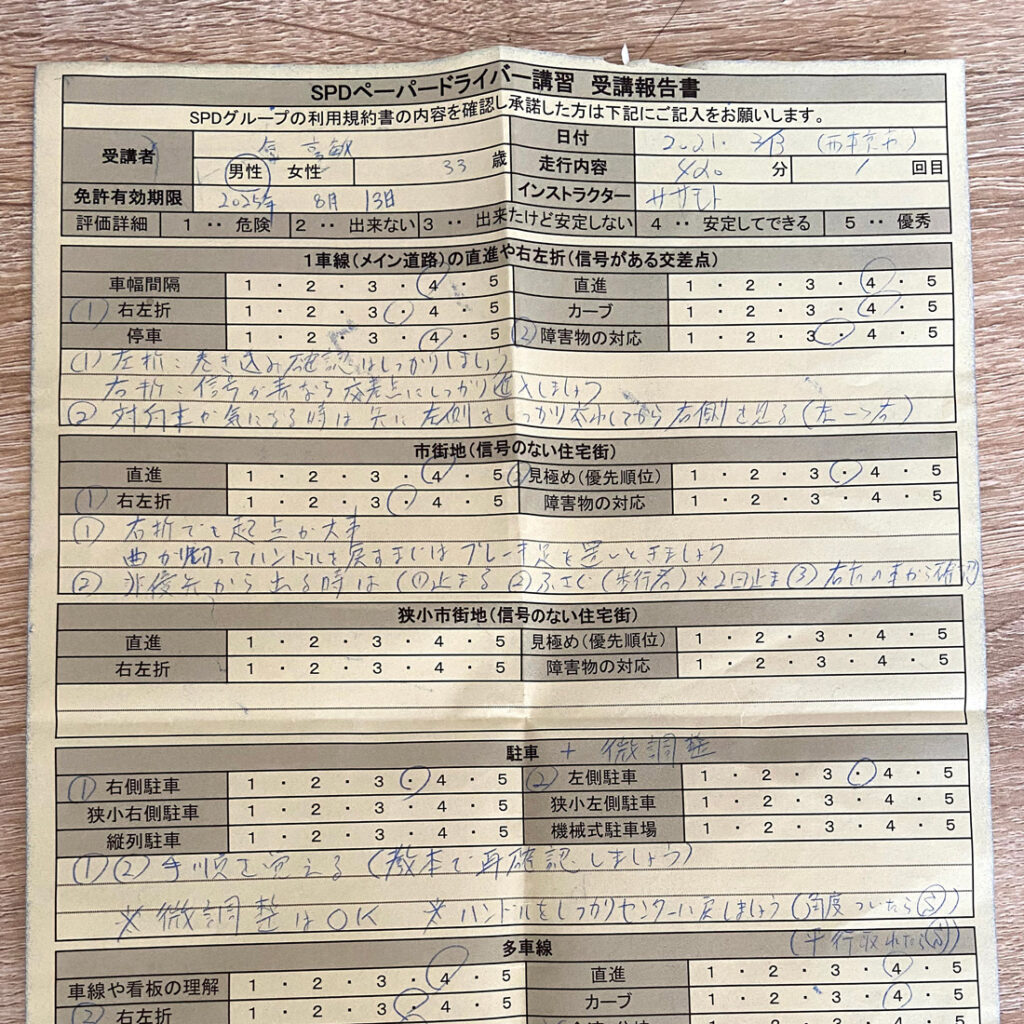 SPDペーパードライバー講習 受講報告書
SPDグループの利用規約書の内容を確認し承諾した方は下記にご記入をお願いします。
受講者 日付 2021. 3/13
男性 女性 33 歳 走行内容 420 分 1 回目
免許有効期限 2025年 8月 13日 インストラクター ササモト
評価詳細 1 ‥ 危険 2 ‥ 出来ない 3 ‥ 出来たけど安定しない 4 ‥ 安定してできる 5 ‥ 優秀
1車線(メイン道路)の直進や右左折(信号がある交差点)
車幅間隔 1 ・ 2 ・ 3 ・ 4 ・ 5 直進 1 ・ 2 ・ 3 ・ 4 ・ 5
(1) 右左折 1 ・ 2 ・ 3 ・ 4 ・ 5 カーブ 1 ・ 2 ・ 3 ・ 4 ・ 5
停車 1 ・ 2 ・ 3 ・ 4 ・ 5 (2) 障害物の対応 1 ・ 2 ・ 3 ・ 4 ・ 5
(1) 左折:巻き込み確認はしっかりしましょう
右折:信号が青なら交差点にしっかり進入しましょう
(2) 対向車が気になる時は先に左側をしっかり してから右側を見る(左→右)
市街地(信号のない住宅街)
直進 1 ・ 2 ・ 3 ・ 4 ・ 5 (2) 見極め(優先順位) 1 ・ 2 ・ 3 ・ 4 ・ 5
(1) 右左折 1 ・ 2 ・ 3 ・ 4 ・ 5 障害物の対応 1 ・ 2 ・ 3 ・ 4 ・ 5
(1) 右折でも起点が大事
曲がり切ってハンドルを戻すまではブレーキ足を置いときましょう
(2) 非優先から出る時は (1)止まる (2)ふさぐ(歩行者)※2回止ま (3) 左右の車から確認
狭小市街地(信号のない住宅街)
直進 1 ・ 2 ・ 3 ・ 4 ・ 5 見極め(優先順位) 1 ・ 2 ・ 3 ・ 4 ・ 5
右左折 1 ・ 2 ・ 3 ・ 4 ・ 5 障害物の対応 1 ・ 2 ・ 3 ・ 4 ・ 5
駐車 + 微調整
(1) 右側駐車 1 ・ 2 ・ 3 ・ 4 ・ 5 (2) 左側駐車 1 ・ 2 ・ 3 ・ 4 ・ 5
狭小右側駐車 1 ・ 2 ・ 3 ・ 4 ・ 5 狭小左側駐車 1 ・ 2 ・ 3 ・ 4 ・ 5
縦列駐車 1 ・ 2 ・ 3 ・ 4 ・ 5 機械式駐車場 1 ・ 2 ・ 3 ・ 4 ・ 5
(1)(2) 手順を覚える(教本で再確認しましょう)
※微調整はOK ※ハンドルをしっかりセンターに戻しましょう(角度ついたら
(平行取れたら
多車線
車線や看板の理解 1 ・ 2 ・ 3 ・ 4 ・ 5 直進 1 ・ 2 ・ 3 ・ 4 ・ 5
(2) 右左折 1 ・ 2 ・ 3 ・ 4 ・ 5 カーブ 1 ・ 2 ・ 3 ・ 4 ・ 5